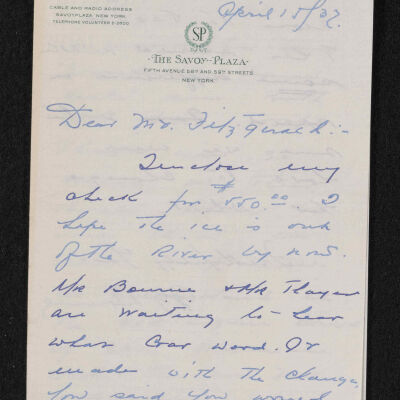 CABLE AND RADIO ADDRESS
SAVOYPLAZA NEW YORK
TELEPHONE VOLUNTEER 5-2600
April 15/37.
SP
THE SAVOY-PLAZA
FIFTH AVENUE 58TH AND 59TH STREETS
NEW YORK
Dear Mr. Fitzgerald:-
I enclose my
check for $550.00. I
hope the ice is out
of the River by now.
Mr Bowne & Mr Thayer
are waiting to hear
what Crar word. Or
made with the change,
You said you would